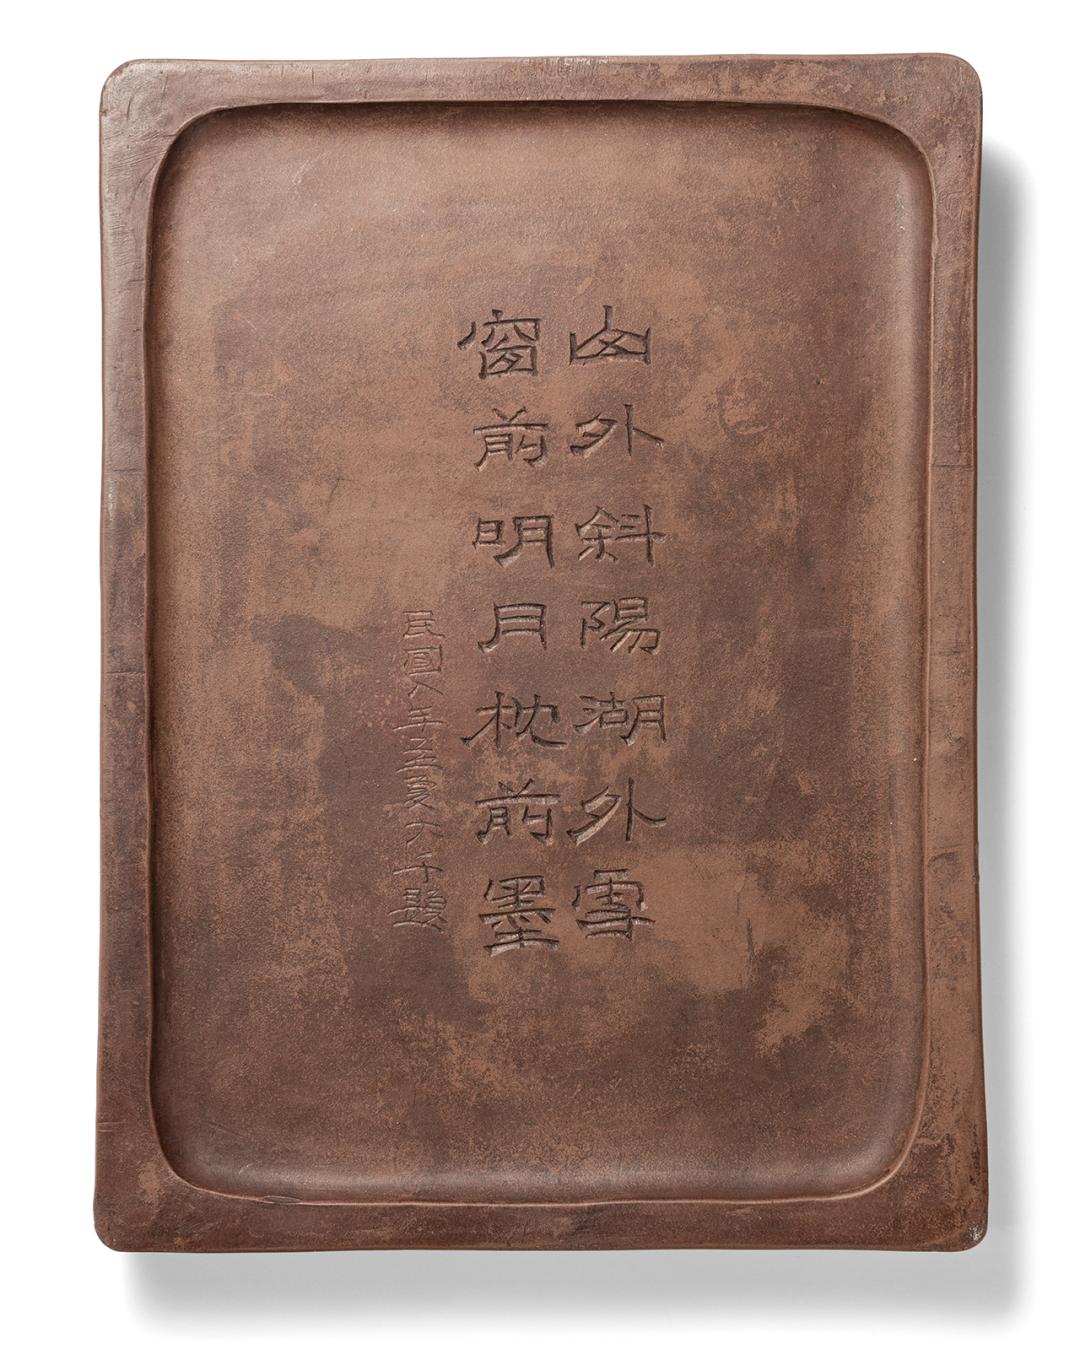 山外斜陽湖外雪
窗前明月枕前墨
民國八年夏大千題